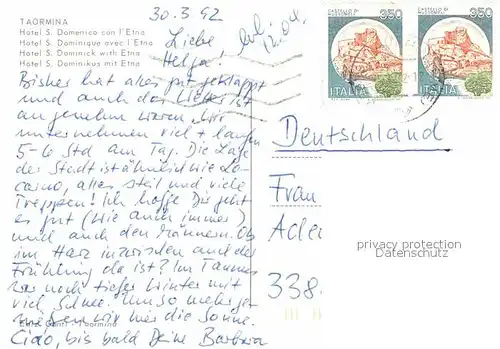 TAORMINA
Hotel S. Domenico con l'Etna
Hotel S. Dominique avec l'Etna
Hotel S. Dominick with Etna
Hotel S. Dominikus mit Etna
30.3.92
Liebe
Helga!
Bisher hat alles gut geklappt
und auch das Wetter ist
angenehm warm. Wir
unternehmen viel + laufen
5-6 Std am Tag. Die Lage
der Stadt ist ähnlich wie Lo-
carno, alles steil und viele
Treppen! Ich hoffe Dir geht
es gut (wie auch immer)
und auch den Männern. Ob
im Harz inzwischen auch der
Frühling da ist? Im Taunus
war noch tiefer Winter mit
viel Schnee. Um so mehr ge-
nießen wir hier die Sonne.
Ciao, bis bald Deine Barbara
Taormina
350
ITALIA
350
ITALIA
Deutschland
Frau
338
privacy protection
Datenschutz